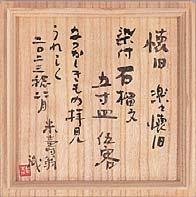 懐旧 楽々懐旧
染付 石榴文
五寸皿 伍客
なつかしきもの拝見
うれしく
二〇二三稔六月 米寿翁